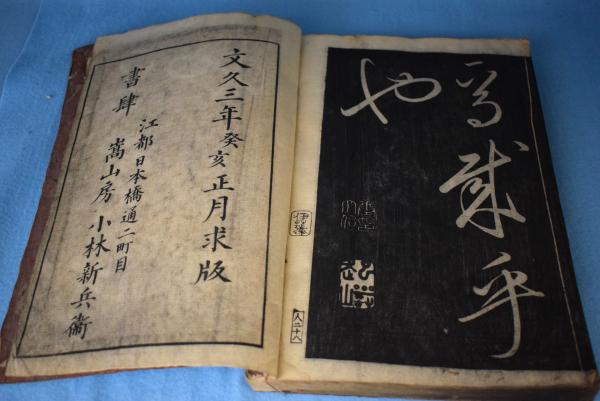 焉哉乎
也
文久三年癸亥正月求版
書肆
江都日本橋通二町目
嵩山房 小林新兵衞